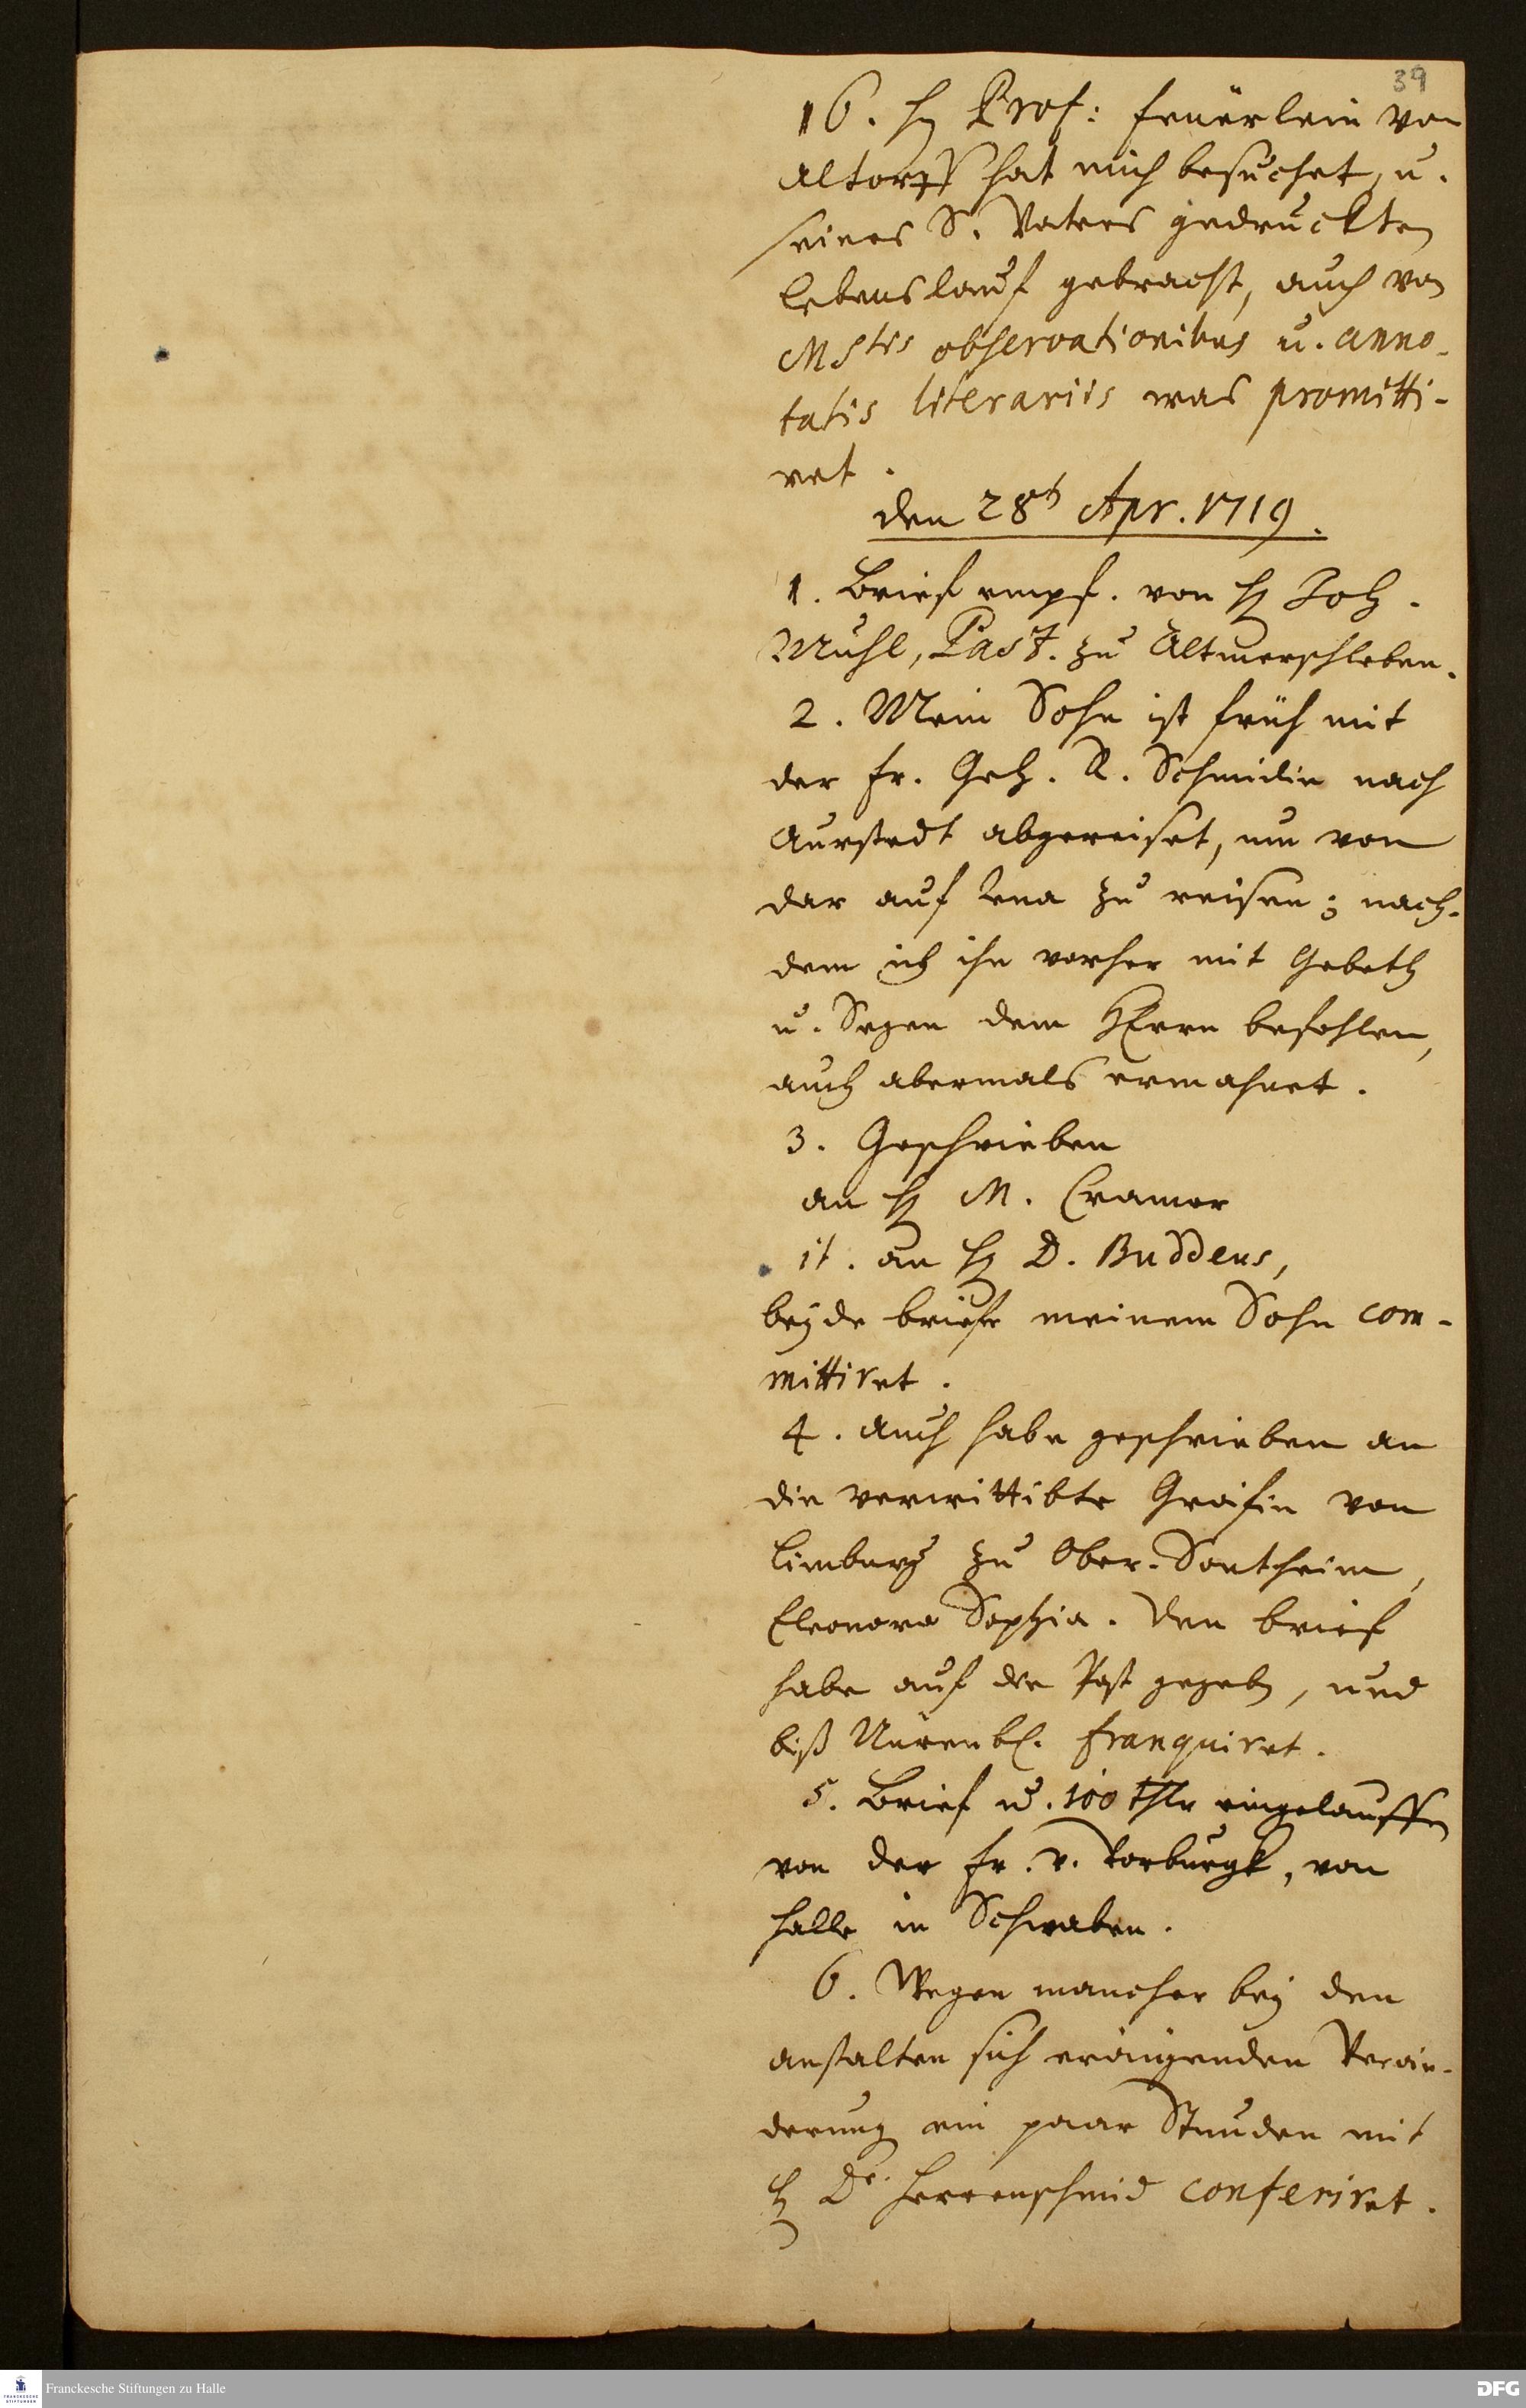 39
16. H. Prof: Feuerlein von
Altorff hat mich besuchet, u.
seines S. Vaters gedruckten
Lebenslauf gebracht, auch von
MStis observationibus u. anno-
tatis literariis was promitti-
ret.
den 28t Apr. 1719.
1. Brief empf. von H. Joh.
Mühl, Past. zu Altmersleben.
2. Mein Sohn ist früh mit
der Fr. Geh. R. Schmidin nach
Aurstedt abgereiset, um von
dar auf Jena zu reisen; nach-
dem ich ihn vorher mit Gebeth
u. Segen dem HErrn befohlen,
auch abermals ermahnet.
3. Geschrieben
an H. M. Cramer
it. an H. D. Buddeus,
beyde briefe meinem Sohn com-
mittiret.
4. Auch habe geschrieben an
die verwittibte Gräfin von
Limburg zu Ober-Sontheim,
Eleonora Sophia. Den brief
habe auf die Post gegeben, und
biß Nürenb. franquiret.
5. Brief u. 100 thlr eingelauffen
von der Fr. v. Vorburgk, von
Halle in Schwaben.
6. Wegen mancher bey den
Anstalten sich eräugenden Verän-
derung ein paar Stunden mit
H. Dr. Herrenschmid conferiret.
Franckesche Stiftungen zu Halle
DFG